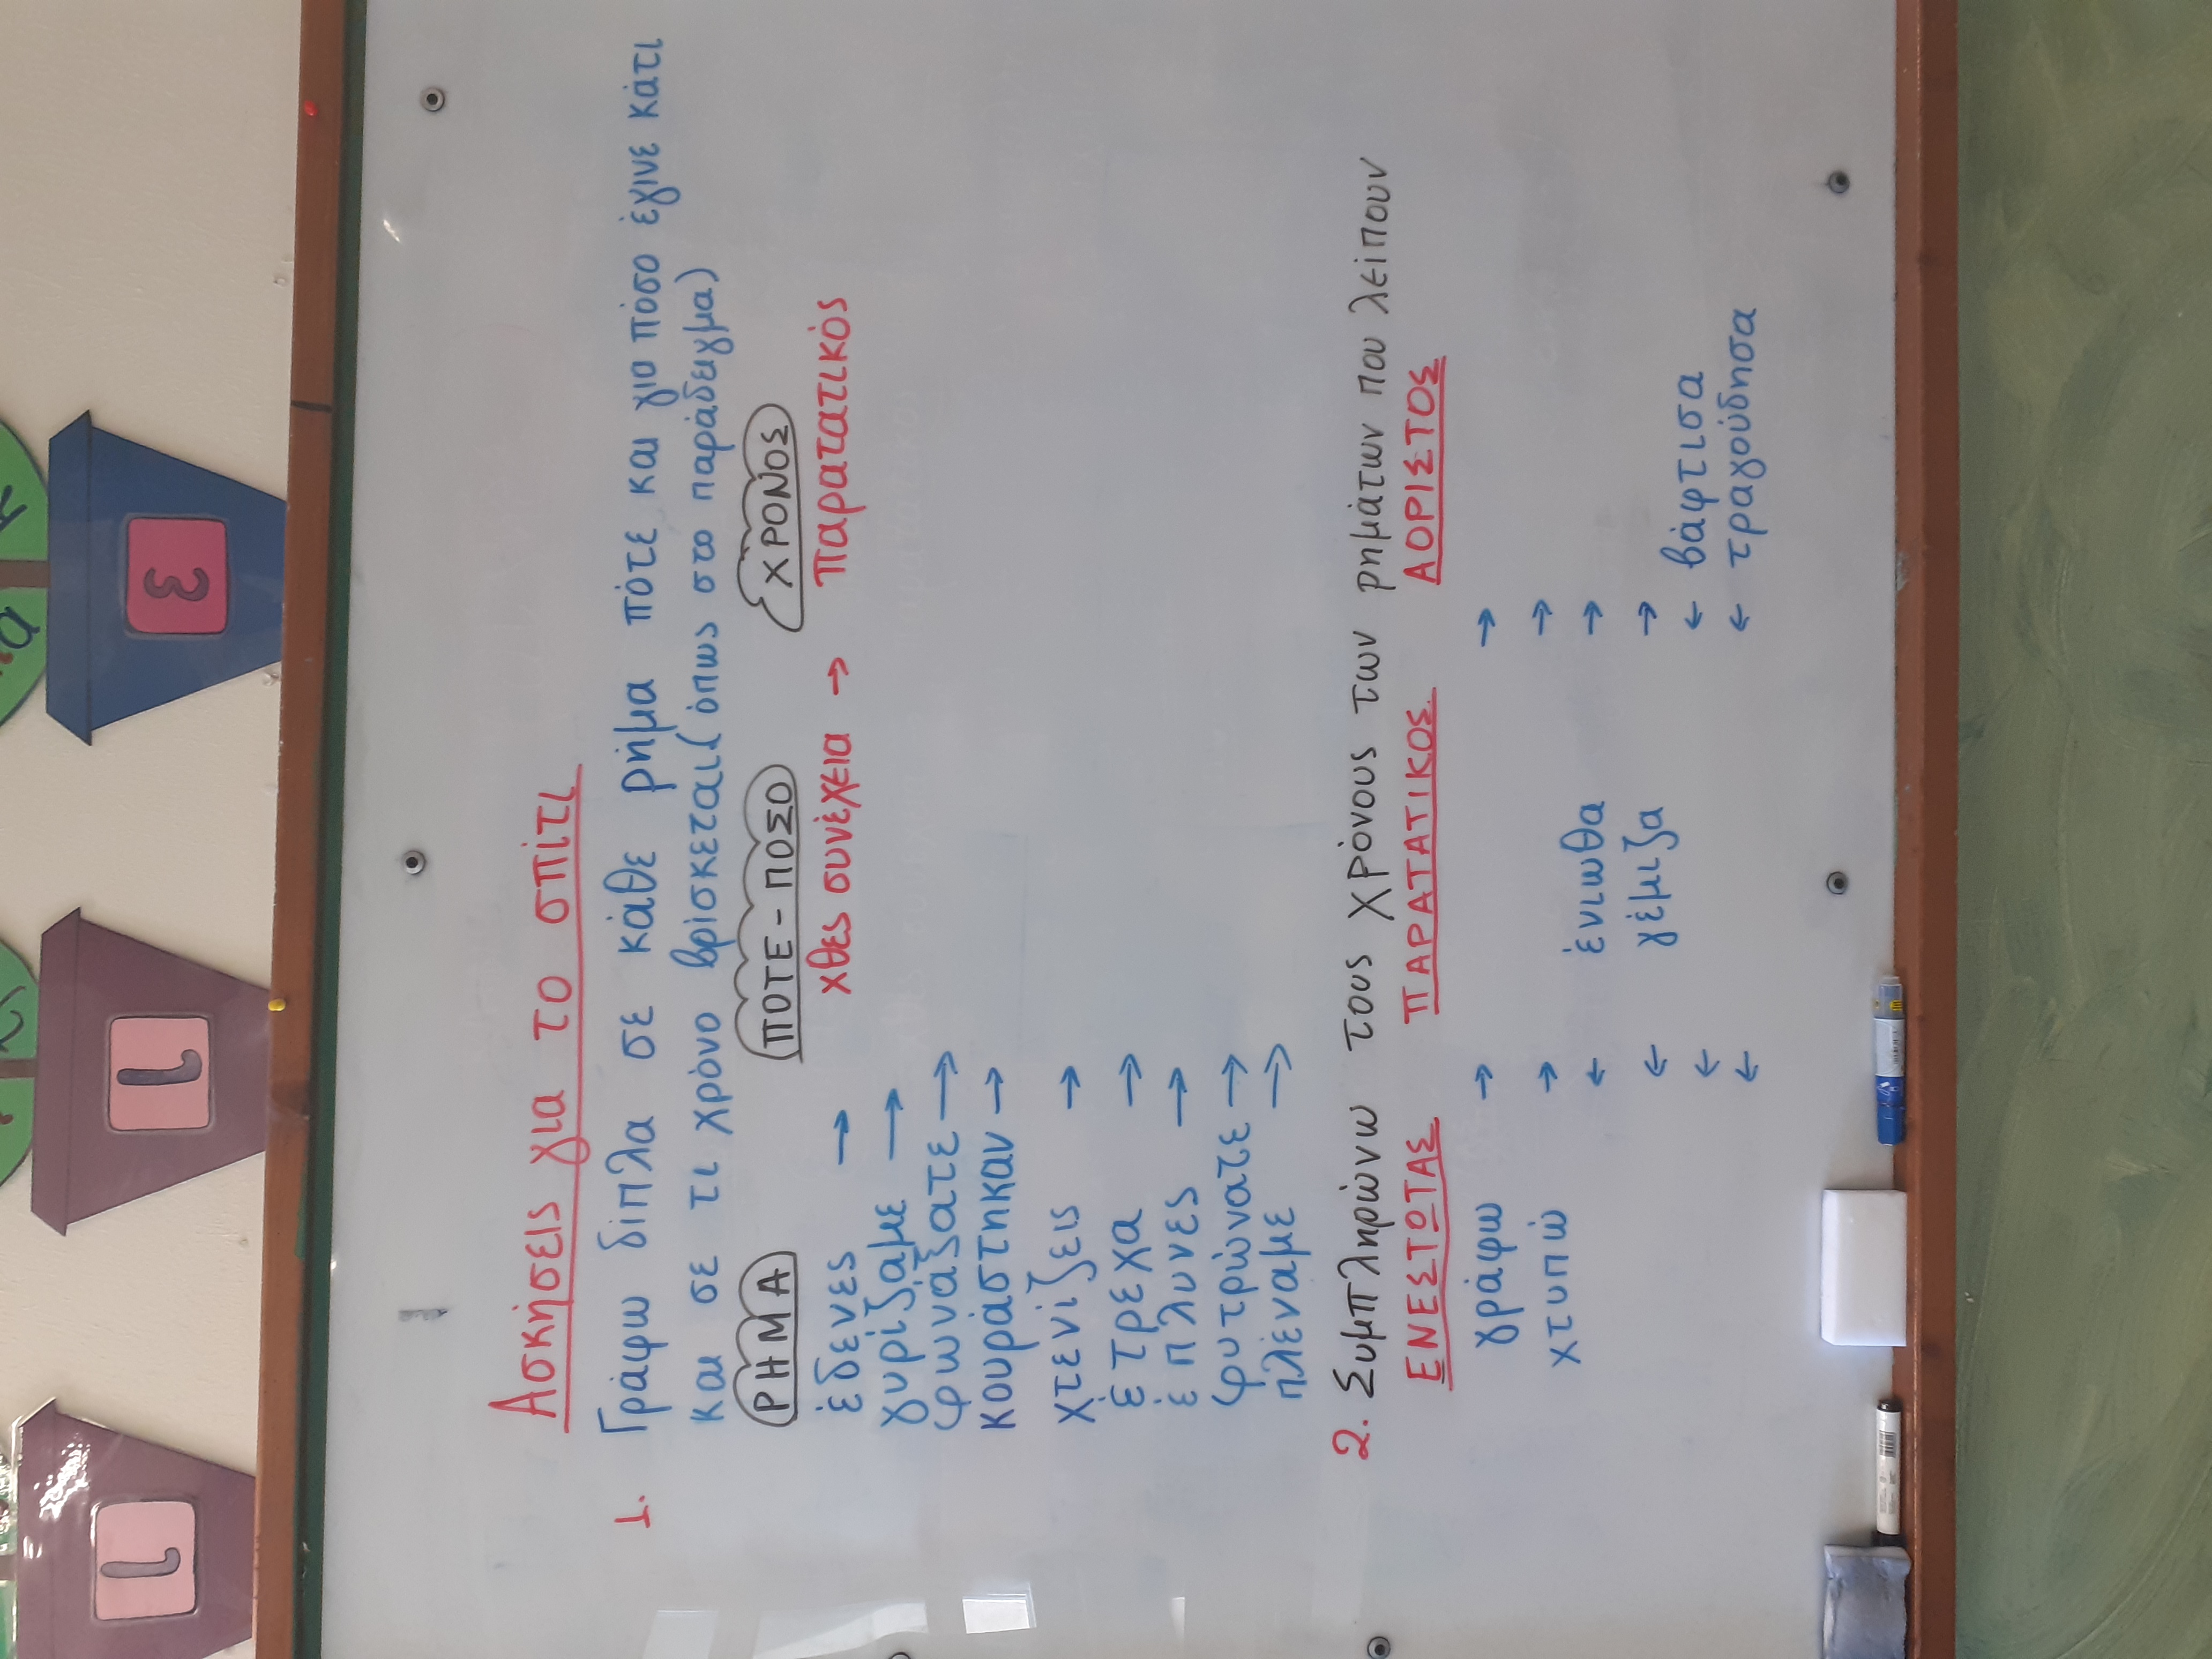 Ασκήσεις για το σπίτι
1. Γράφω δίπλα σε κάθε ρήμα πότε και για πόσο έγινε κάτι
και σε τι χρόνο βρίσκεται (όπως στο παράδειγμα)
ΡΗΜΑ ΠΟΤΕ - ΠΟΣΟ ΧΡΟΝΟΣ
έδενες → χθες συνέχεια → Παρατατικός
γυρίζαμε →
φωνάξατε →
κουράστηκαν →
χτενίζεις →
έτρεχα →
έπλυνες →
φυτρώνατε →
πλέναμε →
2. Συμπληρώνω τους χρόνους των ρημάτων που λείπουν
ΕΝΕΣΤΩΤΑΣ ΠΑΡΑΤΑΤΙΚΟΣ ΑΟΡΙΣΤΟΣ
γράφω → →
χτυπώ → →
← ένιωθα →
← γέμιζα →
← ← βάφτισα
← ← τραγούδησα
3
1
1